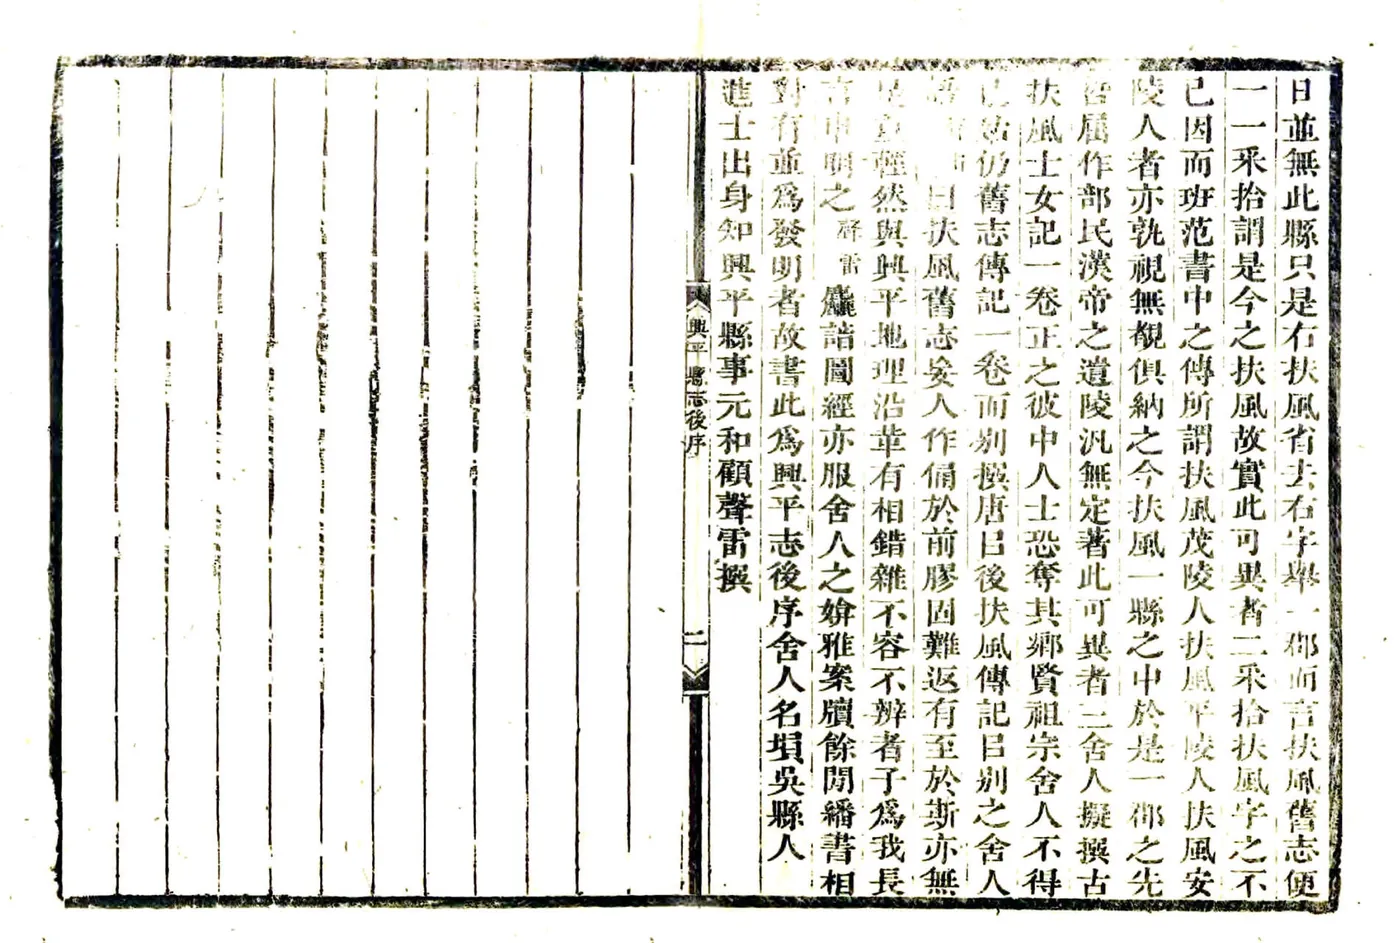 日並無此縣只是右扶風省去右字舉一郡而言扶風舊志便
一一釆拾謂是今之扶風故實此可異者二釆拾扶風字之不
已因而班范書中之傳所謂扶風茂陵人扶風平陵人扶風安
陵人者亦孰視無覩俱納之今扶風一縣之中於是一郡之先
皆屈作部民漢帝之遺陵汎無定著此可異者三舍人擬撰古
扶風士女記一卷正之彼中人士恐奪其鄉賢祖宗舍人不得
已姑仍舊志傳記一卷而別撰唐㠯後扶風傳記㠯別之舍人
曰扶風舊志妄人作俑於前膠固難返有至於斯亦無
足重輕然與興平地理沿革有相錯雜不容不辨者子爲我長
言申明之聲雷麤諳圖經亦服舍人之媕雅案牘餘閒繙書相
對有並爲發明者故書此爲興平志後序舍人名塤吳縣人
進士出身知興平縣事元和顧聲雷撰
興平縣志後序
二